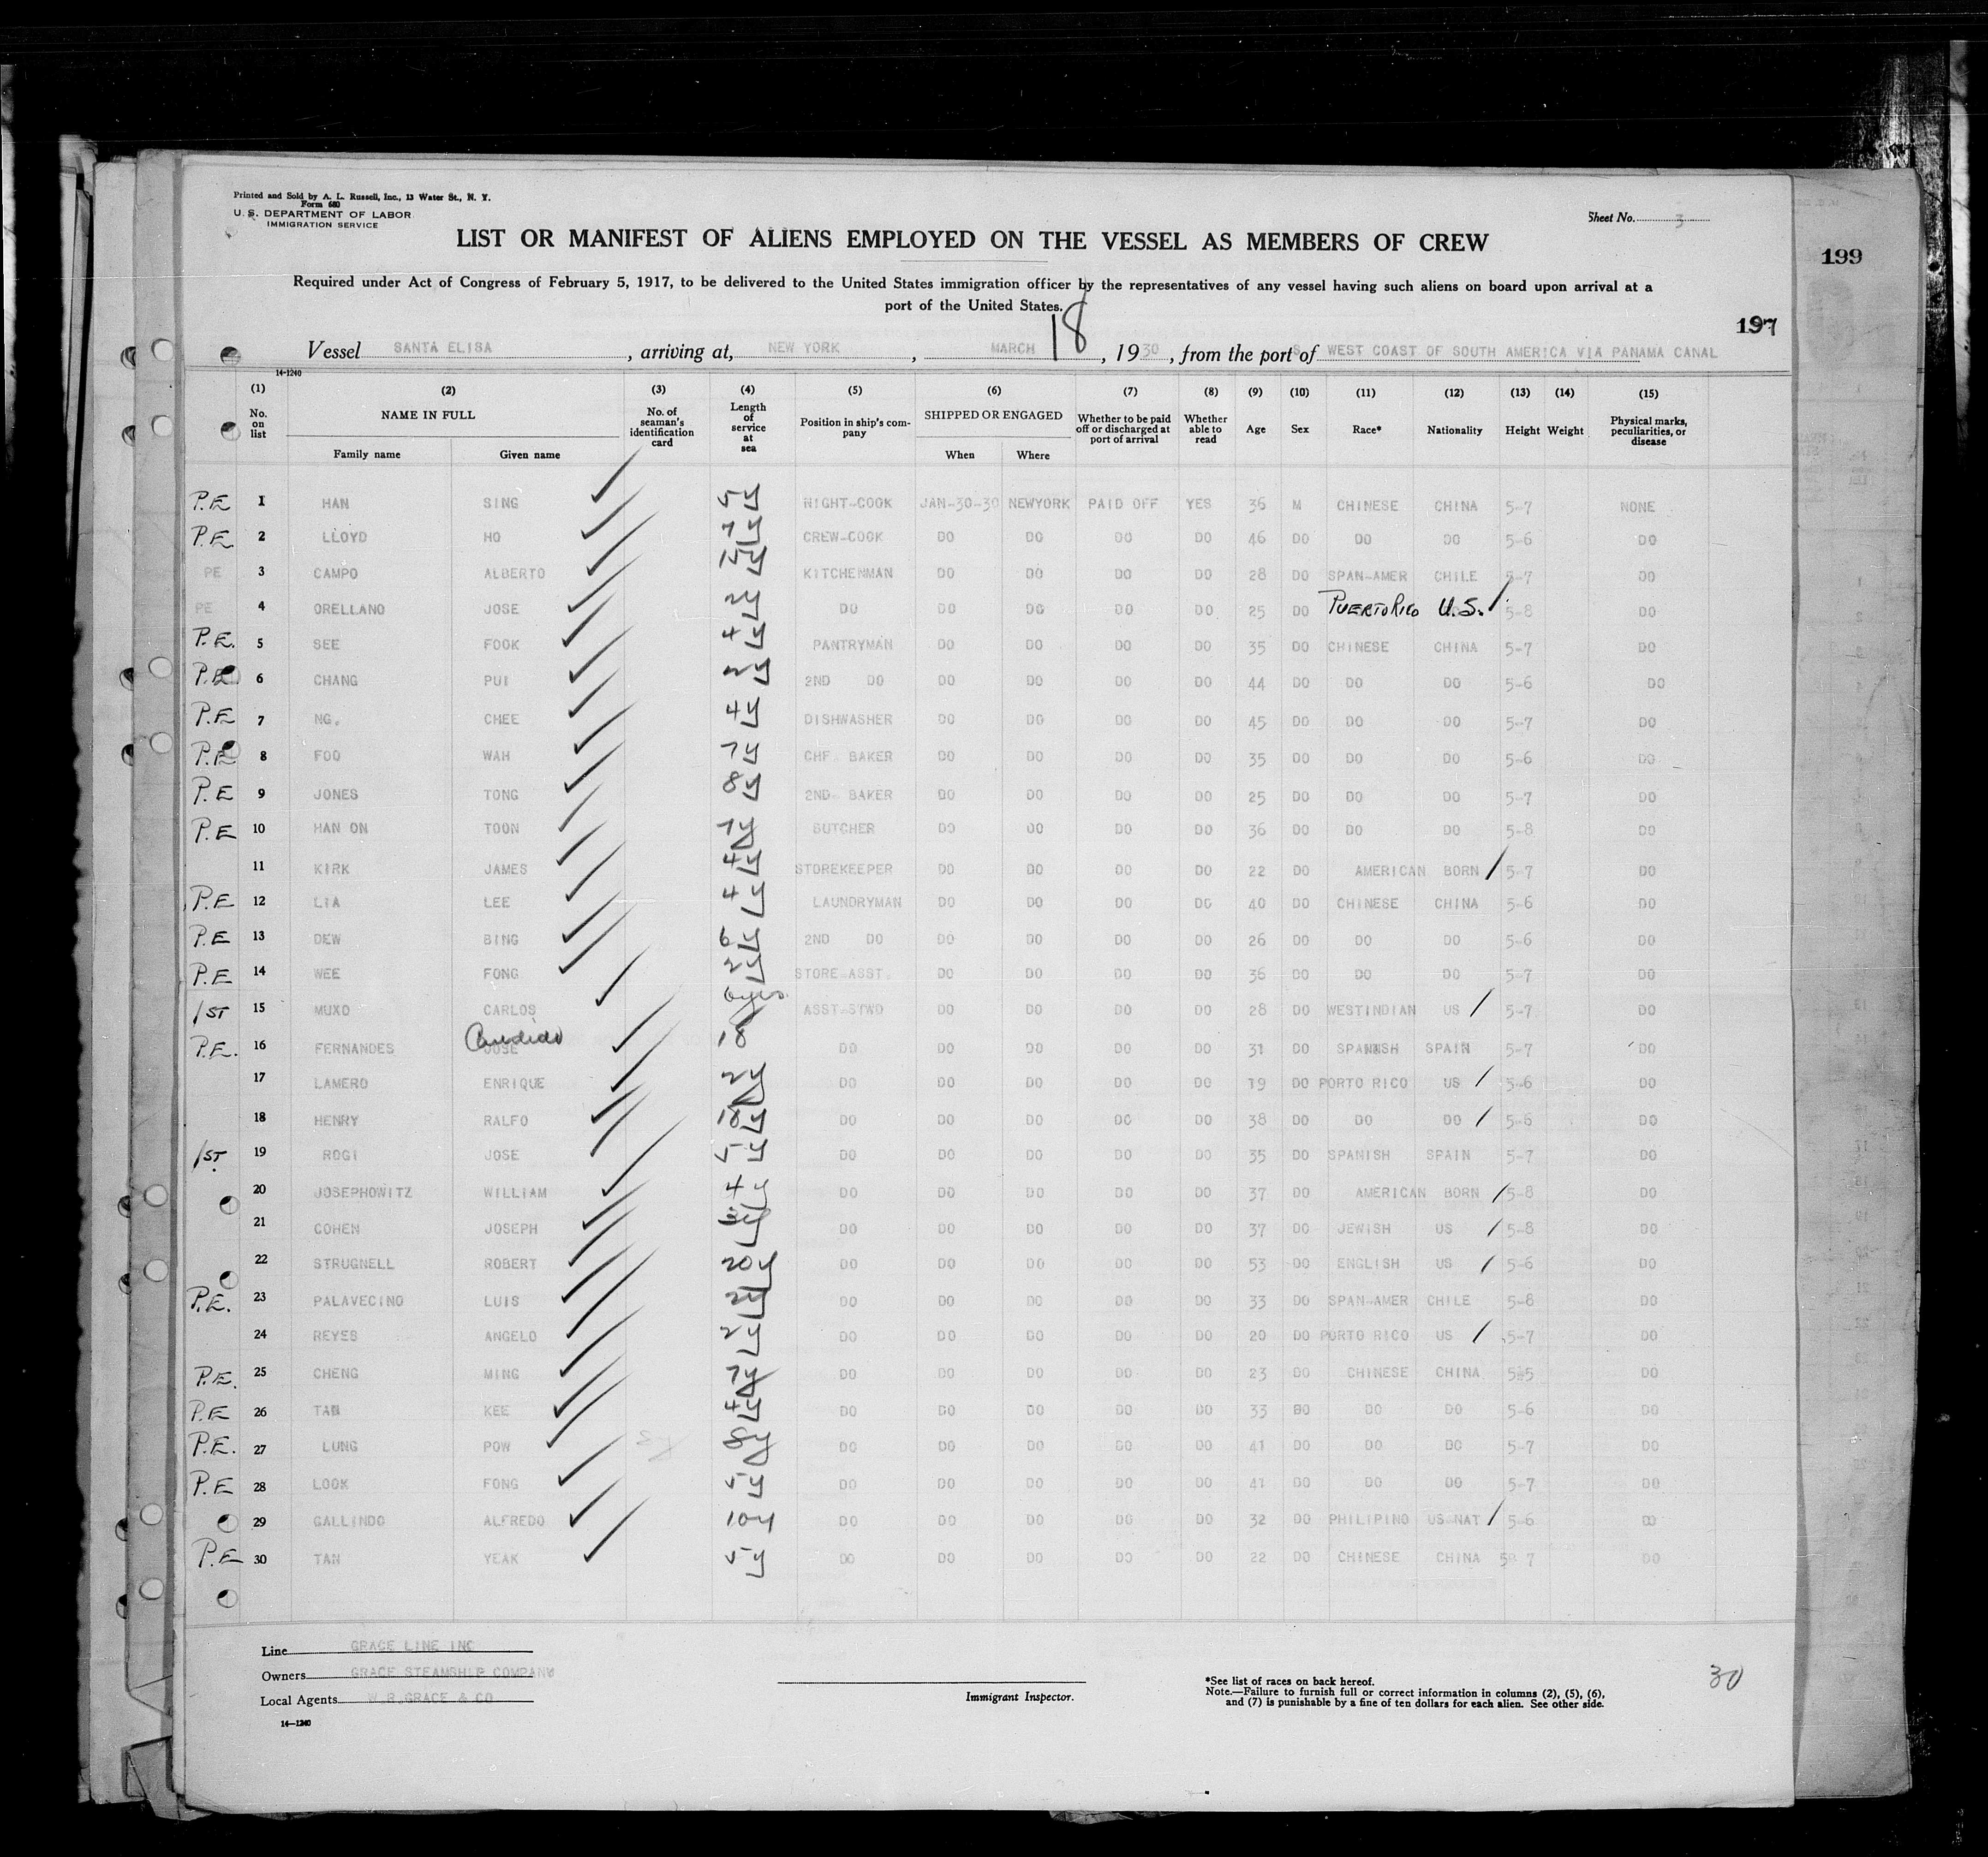 Printed and Sold by A. L. Russell, Inc., 13 Water St., N. Y.
Form 680
U. S. DEPARTMENT OF LABOR
IMMIGRATION SERVICE
Sheet No. 3
LIST OR MANIFEST OF ALIENS EMPLOYED ON THE VESSEL AS MEMBERS OF CREW
199
Required under Act of Congress of February 5, 1917, to be delivered to the United States immigration officer by the representatives of any vessel having such aliens on board upon arrival at a
port of the United States.
197
Vessel SANTA ELISA, arriving at, NEW YORK, MARCH 18, 1930, from the port of S WEST COAST OF SOUTH AMERICA VIA PANAMA CANAL
14-1240
(1) (2) (3) (4) (5) (6) (7) (8) (9) (10) (11) (12) (13) (14) (15)
No. on list NAME IN FULL No. of seaman's identification card Length of service at sea Position in ship's company SHIPPED OR ENGAGED Whether to be paid off or discharged at port of arrival Whether able to read Age Sex Race* Nationality Height Weight Physical marks, peculiarities, or disease
Family name Given name When Where
P.E 1 HAN SING 5y NIGHT-COOK JAN-30-30 NEWYORK PAID OFF YES 36 M CHINESE CHINA 5-7 NONE
P.E. 2 LLOYD HO 7y CREW-COOK DO DO DO DO 46 DO DO DO 5-6 DO
PE 3 CAMPO ALBERTO KITCHENMAN DO DO DO DO 28 DO SPAN-AMER CHILE 5-7 DO
PE 4 ORELLANO JOSE 2y DO DO DO DO DO 25 DO PUERTO RICO U.S. 5-8 DO
P.E. 5 SEE FOOK 4y PANTRYMAN DO DO DO DO 35 DO CHINESE CHINA 5-7 DO
P.E. 6 CHANG PUI 2y 2ND DO DO DO DO DO 44 DO DO DO 5-6 DO
P.E 7 NG. CHEE 4y DISHWASHER DO DO DO DO 45 DO DO DO 5-7 DO
P.E 8 FOO WAH 7y CHF. BAKER DO DO DO DO 35 DO DO DO 5-6 DO
P.E 9 JONES TONG 8y 2ND. BAKER DO DO DO DO 25 DO DO DO 5-7 DO
P.E 10 HAN ON TOON 7y BUTCHER DO DO DO DO 36 DO DO DO 5-8 DO
11 KIRK JAMES 4y STOREKEEPER DO DO DO DO 22 DO AMERICAN BORN 5-7 DO
P.E 12 LIA LEE 4y LAUNDRYMAN DO DO DO DO 40 DO CHINESE CHINA 5-6 DO
P.E 13 DEW BING 6y 2ND DO DO DO DO DO 26 DO DO DO 5-6 DO
P.E 14 WEE FONG 2y STORE-ASST. DO DO DO DO 36 DO DO DO 5-7 DO
1ST 15 MUXO CARLOS 6yrs. ASST-STWD DO DO DO DO 28 DO WESTINDIAN US 5-7 DO
P.E. 16 FERNANDES Candido JOSE DO DO DO DO DO 31 DO SPANISH SPAIN 5-7 DO
17 LAMERO ENRIQUE 2y DO DO DO DO DO 19 DO PORTO RICO US 5-6 DO
18 HENRY RALFO DO DO DO DO DO 38 DO DO DO 5-6 DO
1ST. 19 ROGI JOSE 5y DO DO DO DO DO 35 DO SPANISH SPAIN 5-7 DO
20 JOSEPHOWITZ WILLIAM 4y DO DO DO DO DO 37 DO AMERICAN BORN 5-8 DO
21 COHEN JOSEPH DO DO DO DO DO 37 DO JEWISH US 5-8 DO
22 STRUGNELL ROBERT 20y DO DO DO DO DO 53 DO ENGLISH US 5-6 DO
P.E. 23 PALAVECINO LUIS 2y DO DO DO DO DO 33 DO SPAN-AMER CHILE 5-8 DO
24 REYES ANGELO 2y DO DO DO DO DO 20 DO PORTO RICO US 5-7 DO
P.E. 25 CHENG MING 7y DO DO DO DO DO 23 DO CHINESE CHINA 5-5 DO
P.E 26 TAN KEE 4y DO DO DO DO DO 33 DO DO DO 5-6 DO
P.E. 27 LUNG POW 8y 8y DO DO DO DO DO 41 DO DO DO 5-7 DO
P.E 28 LOOK FONG 5y DO DO DO DO DO 41 DO DO DO 5-7 DO
29 GALLINDO ALFREDO 10y DO DO DO DO DO 32 DO PHILIPINO US NAT 5-6 DO
P.E 30 TAN YEAK 5y DO DO DO DO DO 22 DO CHINESE CHINA 5-7 DO
Line GRACE LINE INC
Owners GRACE STEAMSHIP COMPANY
Local Agents W.R.GRACE & CO
14—1240
Immigrant Inspector.
*See list of races on back hereof.
Note.—Failure to furnish full or correct information in columns (2), (5), (6),
and (7) is punishable by a fine of ten dollars for each alien. See other side.
30